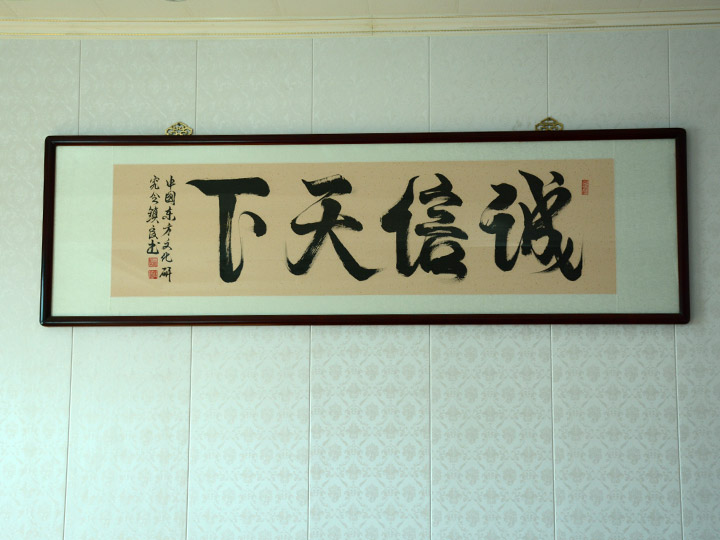 诚信天下
中国东方文化研
究会镇